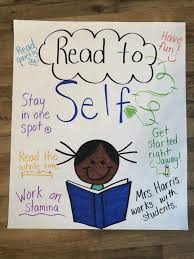 Read
quietly
Read to
Self
Have
fun!
Stay
in one
spot.
Read the
whole time.
Work on
Stamina
Get
started
right
away!
Mrs. Harris
works with
students.